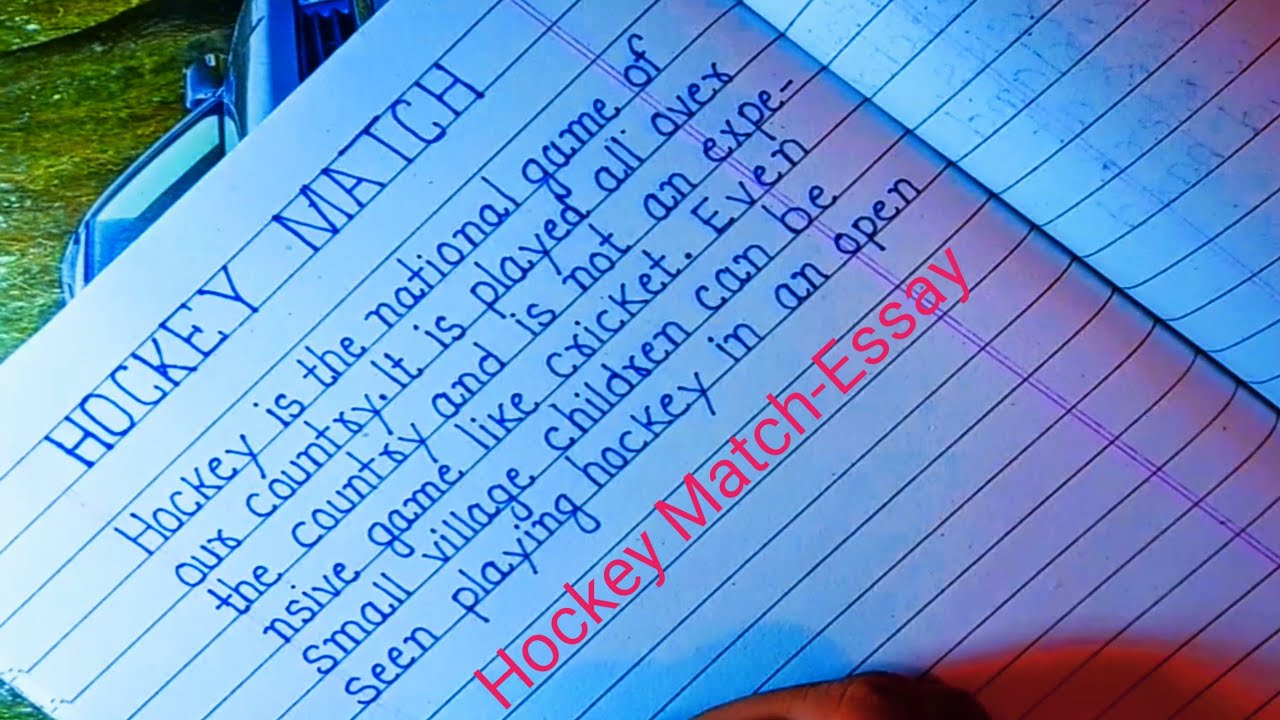 HOCKEY MATCH
Hockey is the national game of
our country. It is played all over
the country and is not an expe-
nsive game like cricket. Even
small village children can be
seen playing hockey in an open
Hockey Match-Essay